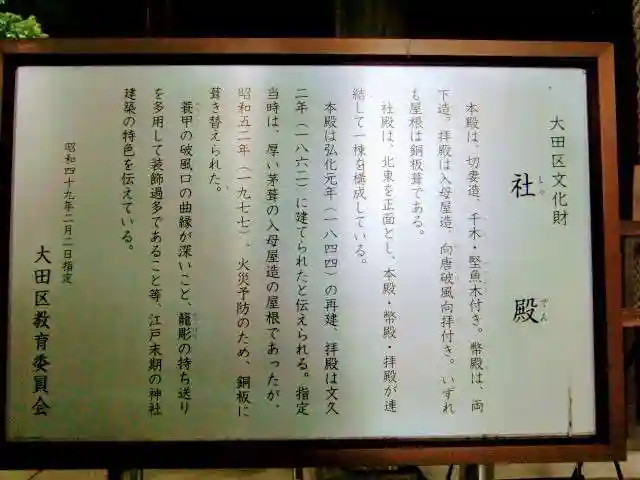 大田区文化財
社殿
しゃ
でん
本殿は、切妻造、千木・堅魚木付き。幣殿は、両
下造。拝殿は入母屋造、向唐破風向拝付き。いずれ
も屋根は銅板葺である。
社殿は、北東を正面とし、本殿・幣殿・拝殿が連
結して一棟を構成している。
本殿は弘化元年（一八四四）の再建、拝殿は文久
二年（一八六二）に建てられたと伝えられる。指定
当時は、厚い茅葺の入母屋造の屋根であったが、
昭和五二年（一九七七）、火災予防のため、銅板に
葺き替えられた。
蓑甲の破風口の曲縁が深いこと、籠彫の持ち送り
を多用して装飾過多であること等、江戸末期の神社
建築の特色を伝えている。
昭和四十九年二月二日指定
大田区教育委員会